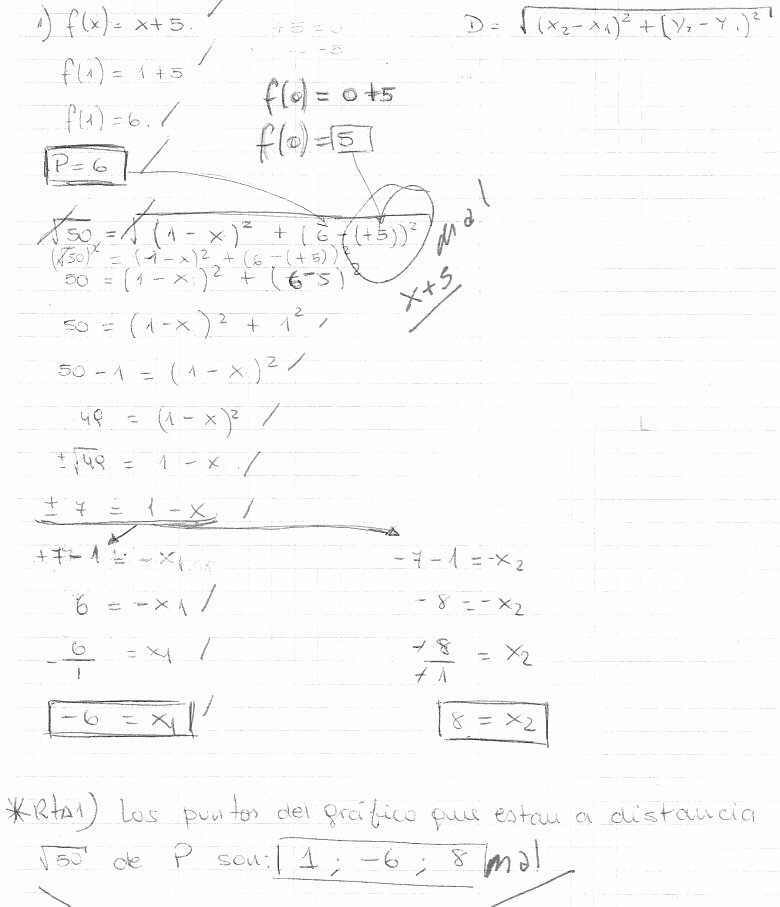 1) f(x) = x+5.
D = √((x₂-x₁)² + (y₂-y₁)²)
f(1) = 1+5
f(1) = 6.
P = 6
f(0) = 0+5
f(0) = 5
√50 = √((1-x)² + (6-(+5))²)
mal
x+5
(√50)² = (1-x)² + (6-(+5))²
50 = (1-x)² + (6-5)²
50 = (1-x)² + 1²
50-1 = (1-x)²
49 = (1-x)²
±√49 = 1-x
±7 = 1-x
+7-1 = -x₁
-7-1 = -x₂
6 = -x₁
-8 = -x₂
-6/1 = x₁
-8/-1 = x₂
-6 = x₁
8 = x₂
*Rta1) Los puntos del gráfico que estan a distancia
√50 de P son: 1 ; -6 ; 8 mal